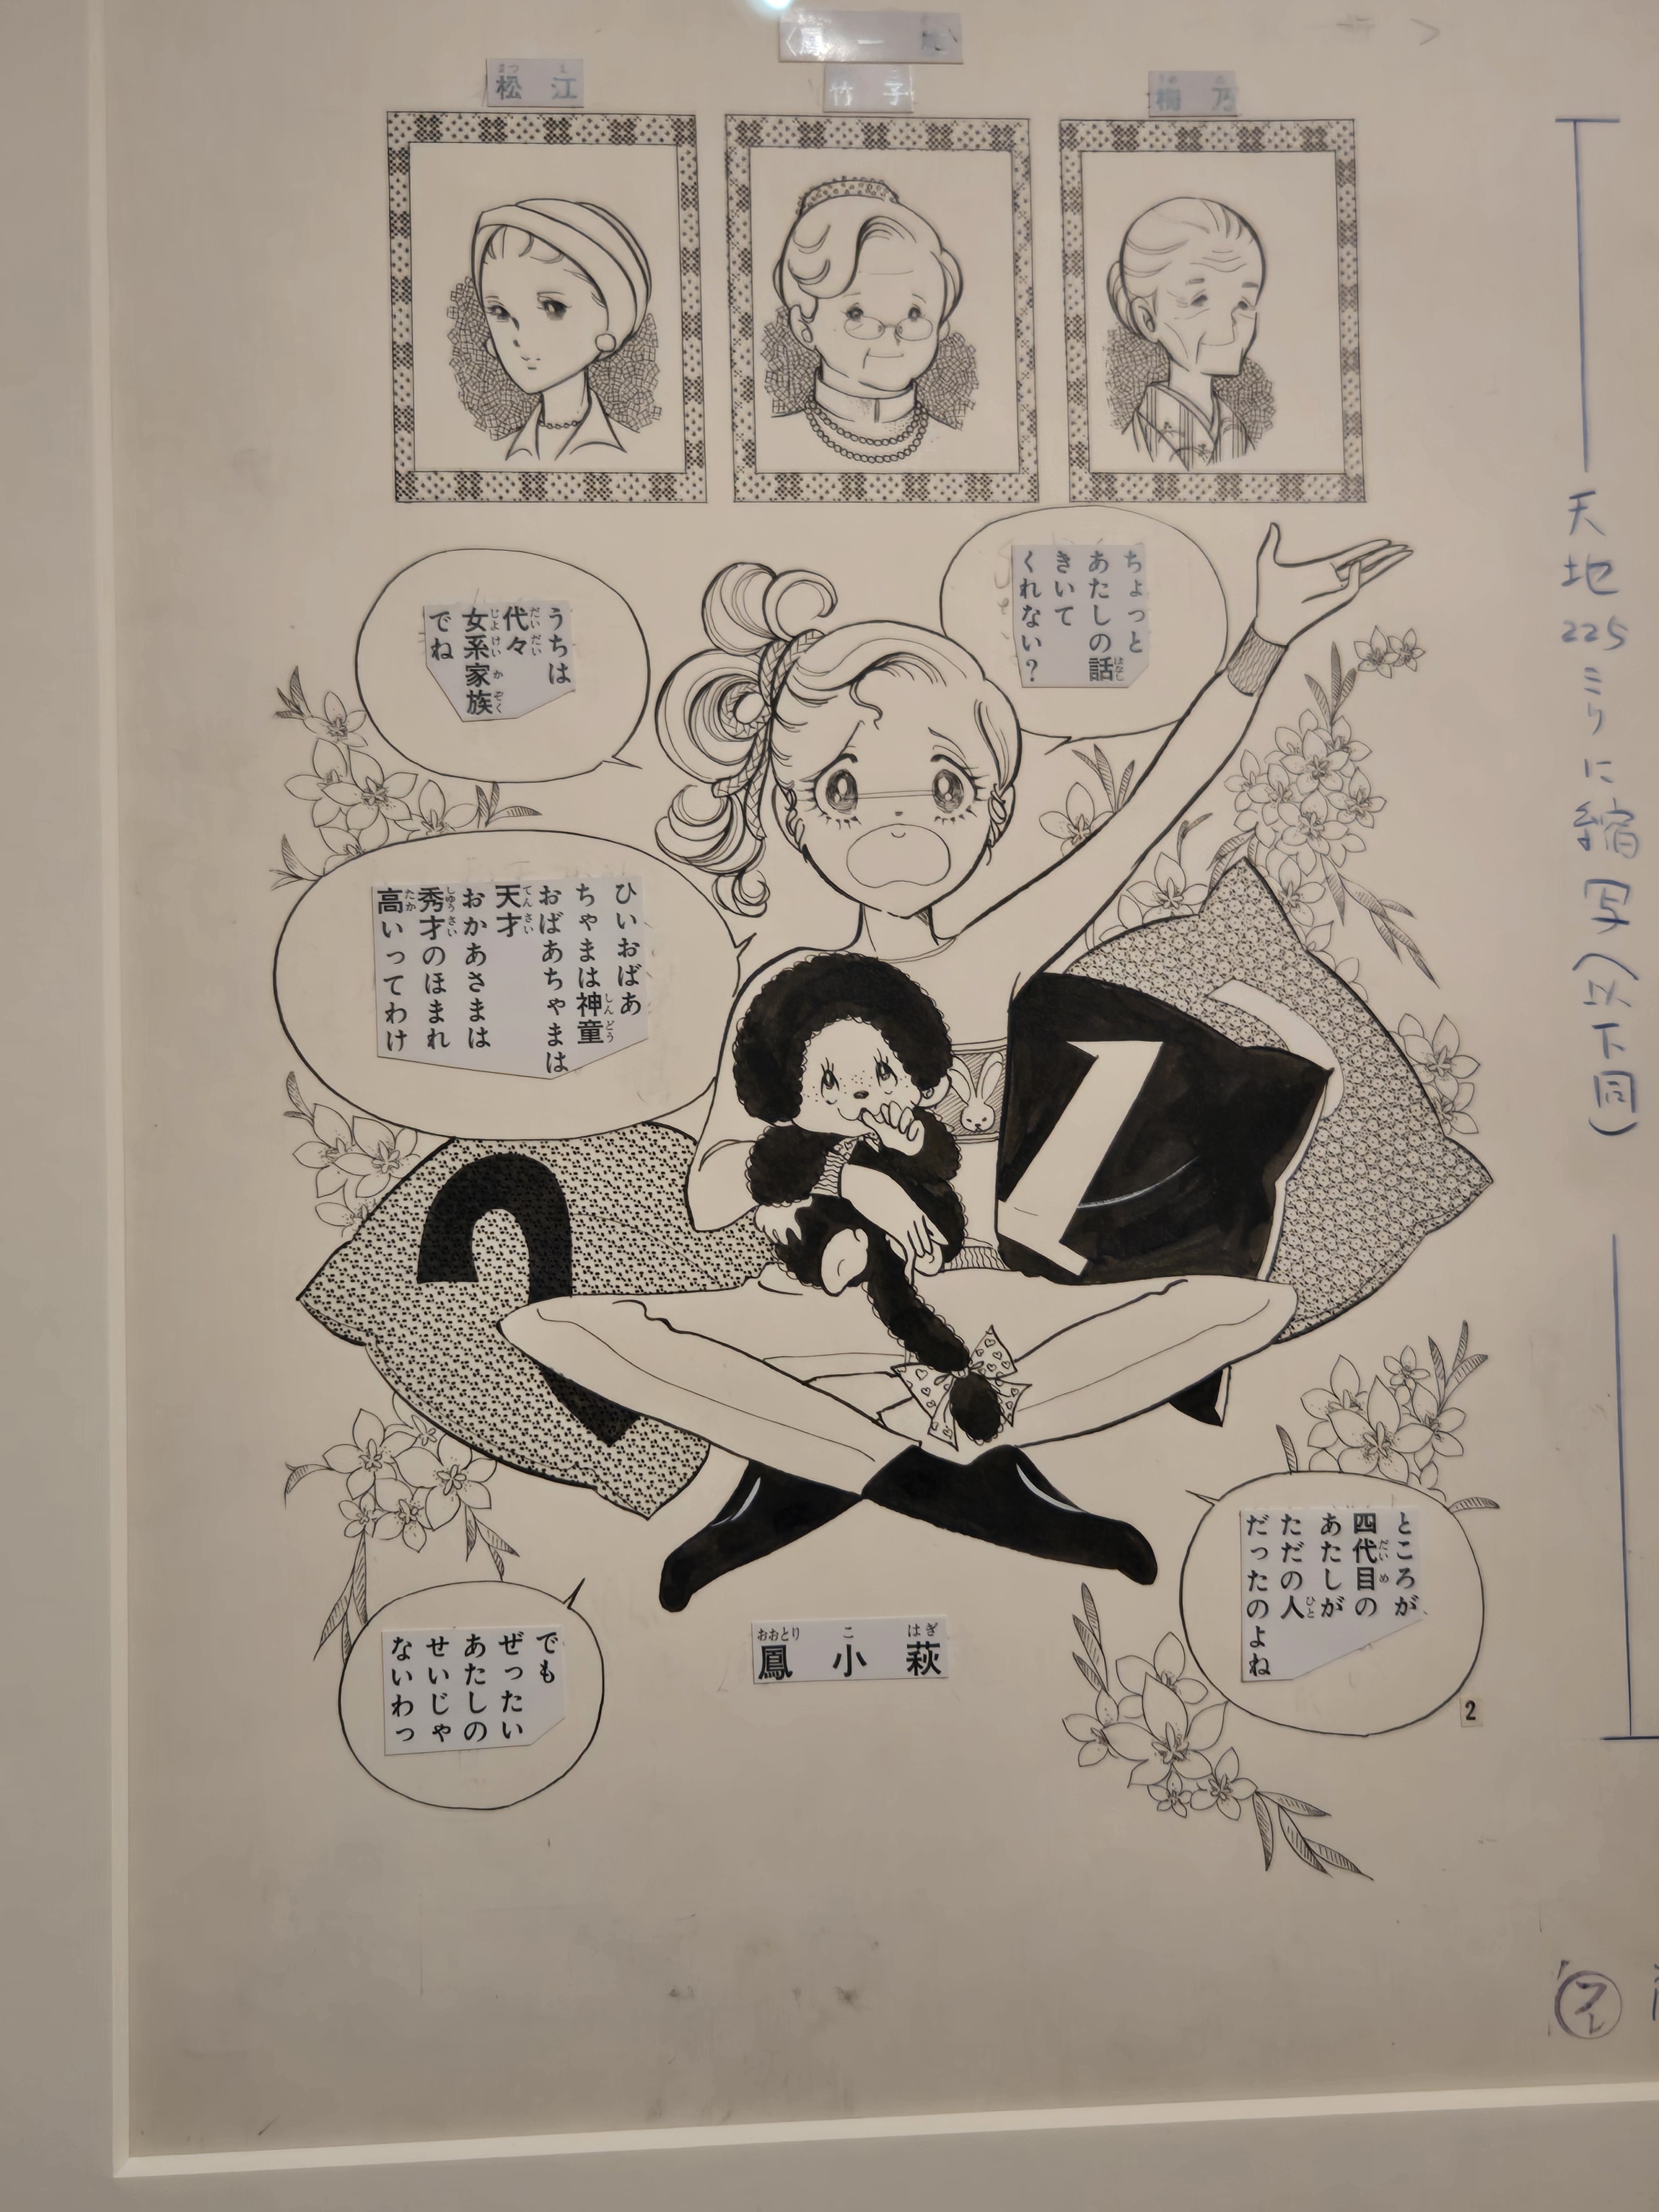 梅乃
竹子
松江
ちょっと
あたしの話
きいて
くれない？
うちは
代々
女系家族
でね
ひいおばあ
ちゃまは神童
おばあちゃまは
天才
おかあさまは
秀才のほまれ
高いってわけ
1
2
鳳小萩
おおとり こ はぎ
ところが
四代目の
あたしが
ただの人
だったのよね
でも
ぜったい
あたしの
せいじゃ
ないわっ
2
天地225ミリに縮写(以下同)